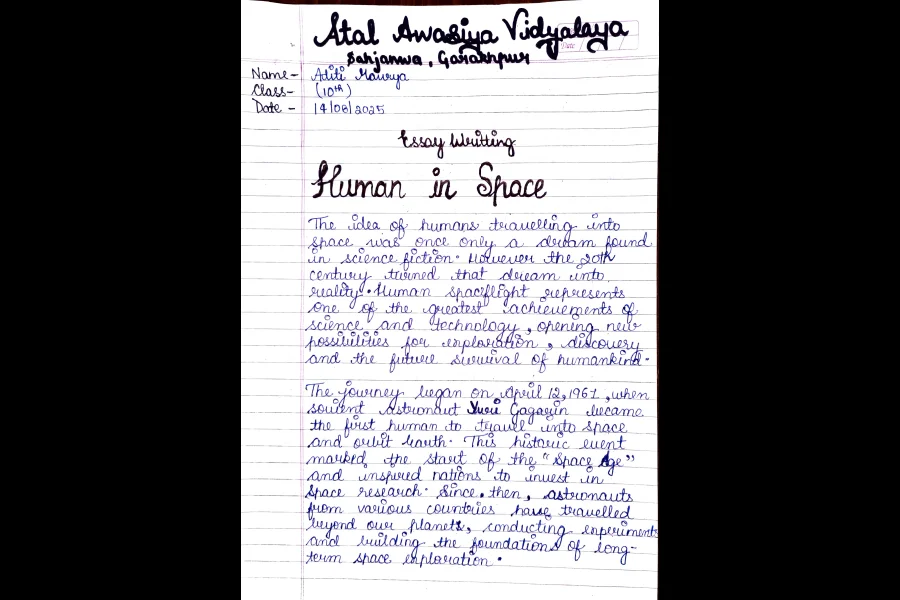 Atal Awasiya Vidyalaya
Sahjanwa, Gorakhpur
Name- Aditi Maurya
Class- (10th)
Date - 14/08/2025
Essay Writting
Human in Space
The idea of humans travelling into
space was once only a dream found
in science fiction. However the 20th
century turned that dream into
reality. Human spaceflight represents
one of the greatest achievements of
science and technology, opening new
possibilities for exploration, discovery
and the future survival of humankind.
The journey began on April 12, 1961, when
soviet astronaut Yuri Gagarin became
the first human to travel into space
and orbit Earth. This historic event
marked the start of the "Space Age"
and inspired nations to invest in
space research. Since then, astronauts
from various countries have travelled
beyond our planets, conducting experiments
and building the foundations of long-
term space exploration.